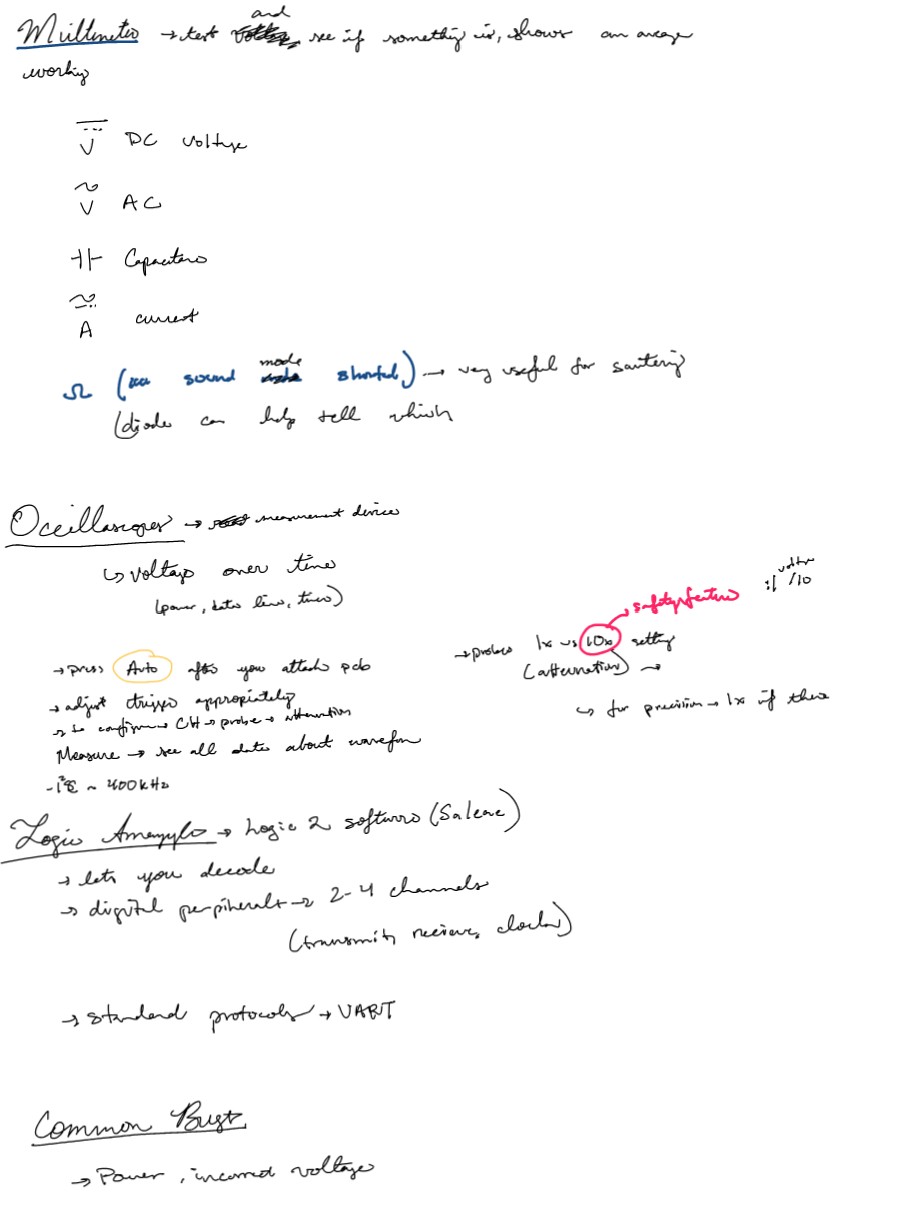 Multimeter → test and see if something is, shows an average
working
V DC voltage
V AC
Capacitors
A current
Ω ( sound mode shorted) → very useful for
(diode can help tell which
Oscilloscopes → measurement device
↳ voltage over time
(power, data line, time)
:1 voltage /10
safety feature
→ probes 1x vs 10x setting
(attenuation) →
↳ for precision → 1x if there
→ press Auto after you attach pcb
→ adjust trigger appropriately
→ to confirm → CH → probe → attenuation
Measure → see all data about waveform
- I²C ~ 400kHz
Logic → Logic 2 software (Saleae)
→ lets you decode
→ digital peripheral → 2-4 channels
(transmit, recieve, clock)
→ standard protocols → UART
Common Bugs
→ Power, incorrect voltage